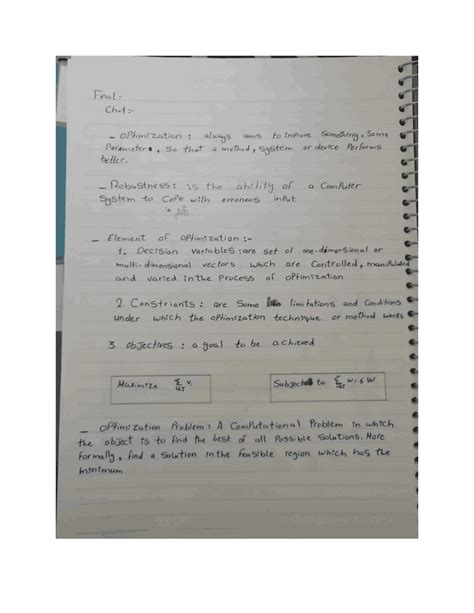 Final:
Ch.1:-
_ Optimization : always aims to improve something, some
Parameters, so that a method, system or device Performs
better.
_ Robustness: is the ability of a Computer
System to CoPe with erroneous input
_ Element of oPtimization :-
1. Decision variables: are set of one-dimensional or
multi-dimensional vectors which are Controlled, manipulated
and varied in the Process of oPtimization
2. Constriants : are Some limitations and Conditions
under which the oPtimization technique or method works
3. objectives : a goal to be achieved
Maximize Σ i∈T vi
Subject to Σ i∈T wi ≤ W
_ OPtimization Problem : A ComPutational Problem in which
the object is to find the best of all Possible Solutions. More
formally, find a Solution in the feasible region which has the
minimum